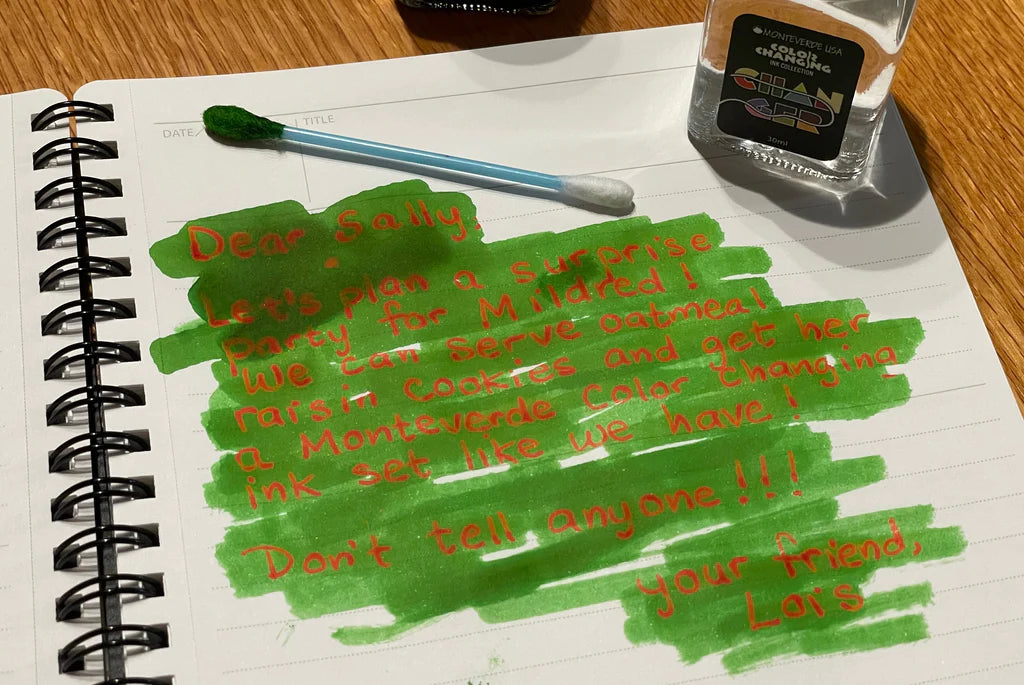 MONTEVERDE USA
COLOR
CHANGING
INK COLLECTION
CHAN
GER
30ml
DATE/
TITLE
Dear Sally,
Let's plan a surprise
party for Mildred!
We can serve oatmeal
raisin cookies and get her
a Monteverde Color Changing
ink set like we have!
Don't tell anyone!!!
your friend,
Lois